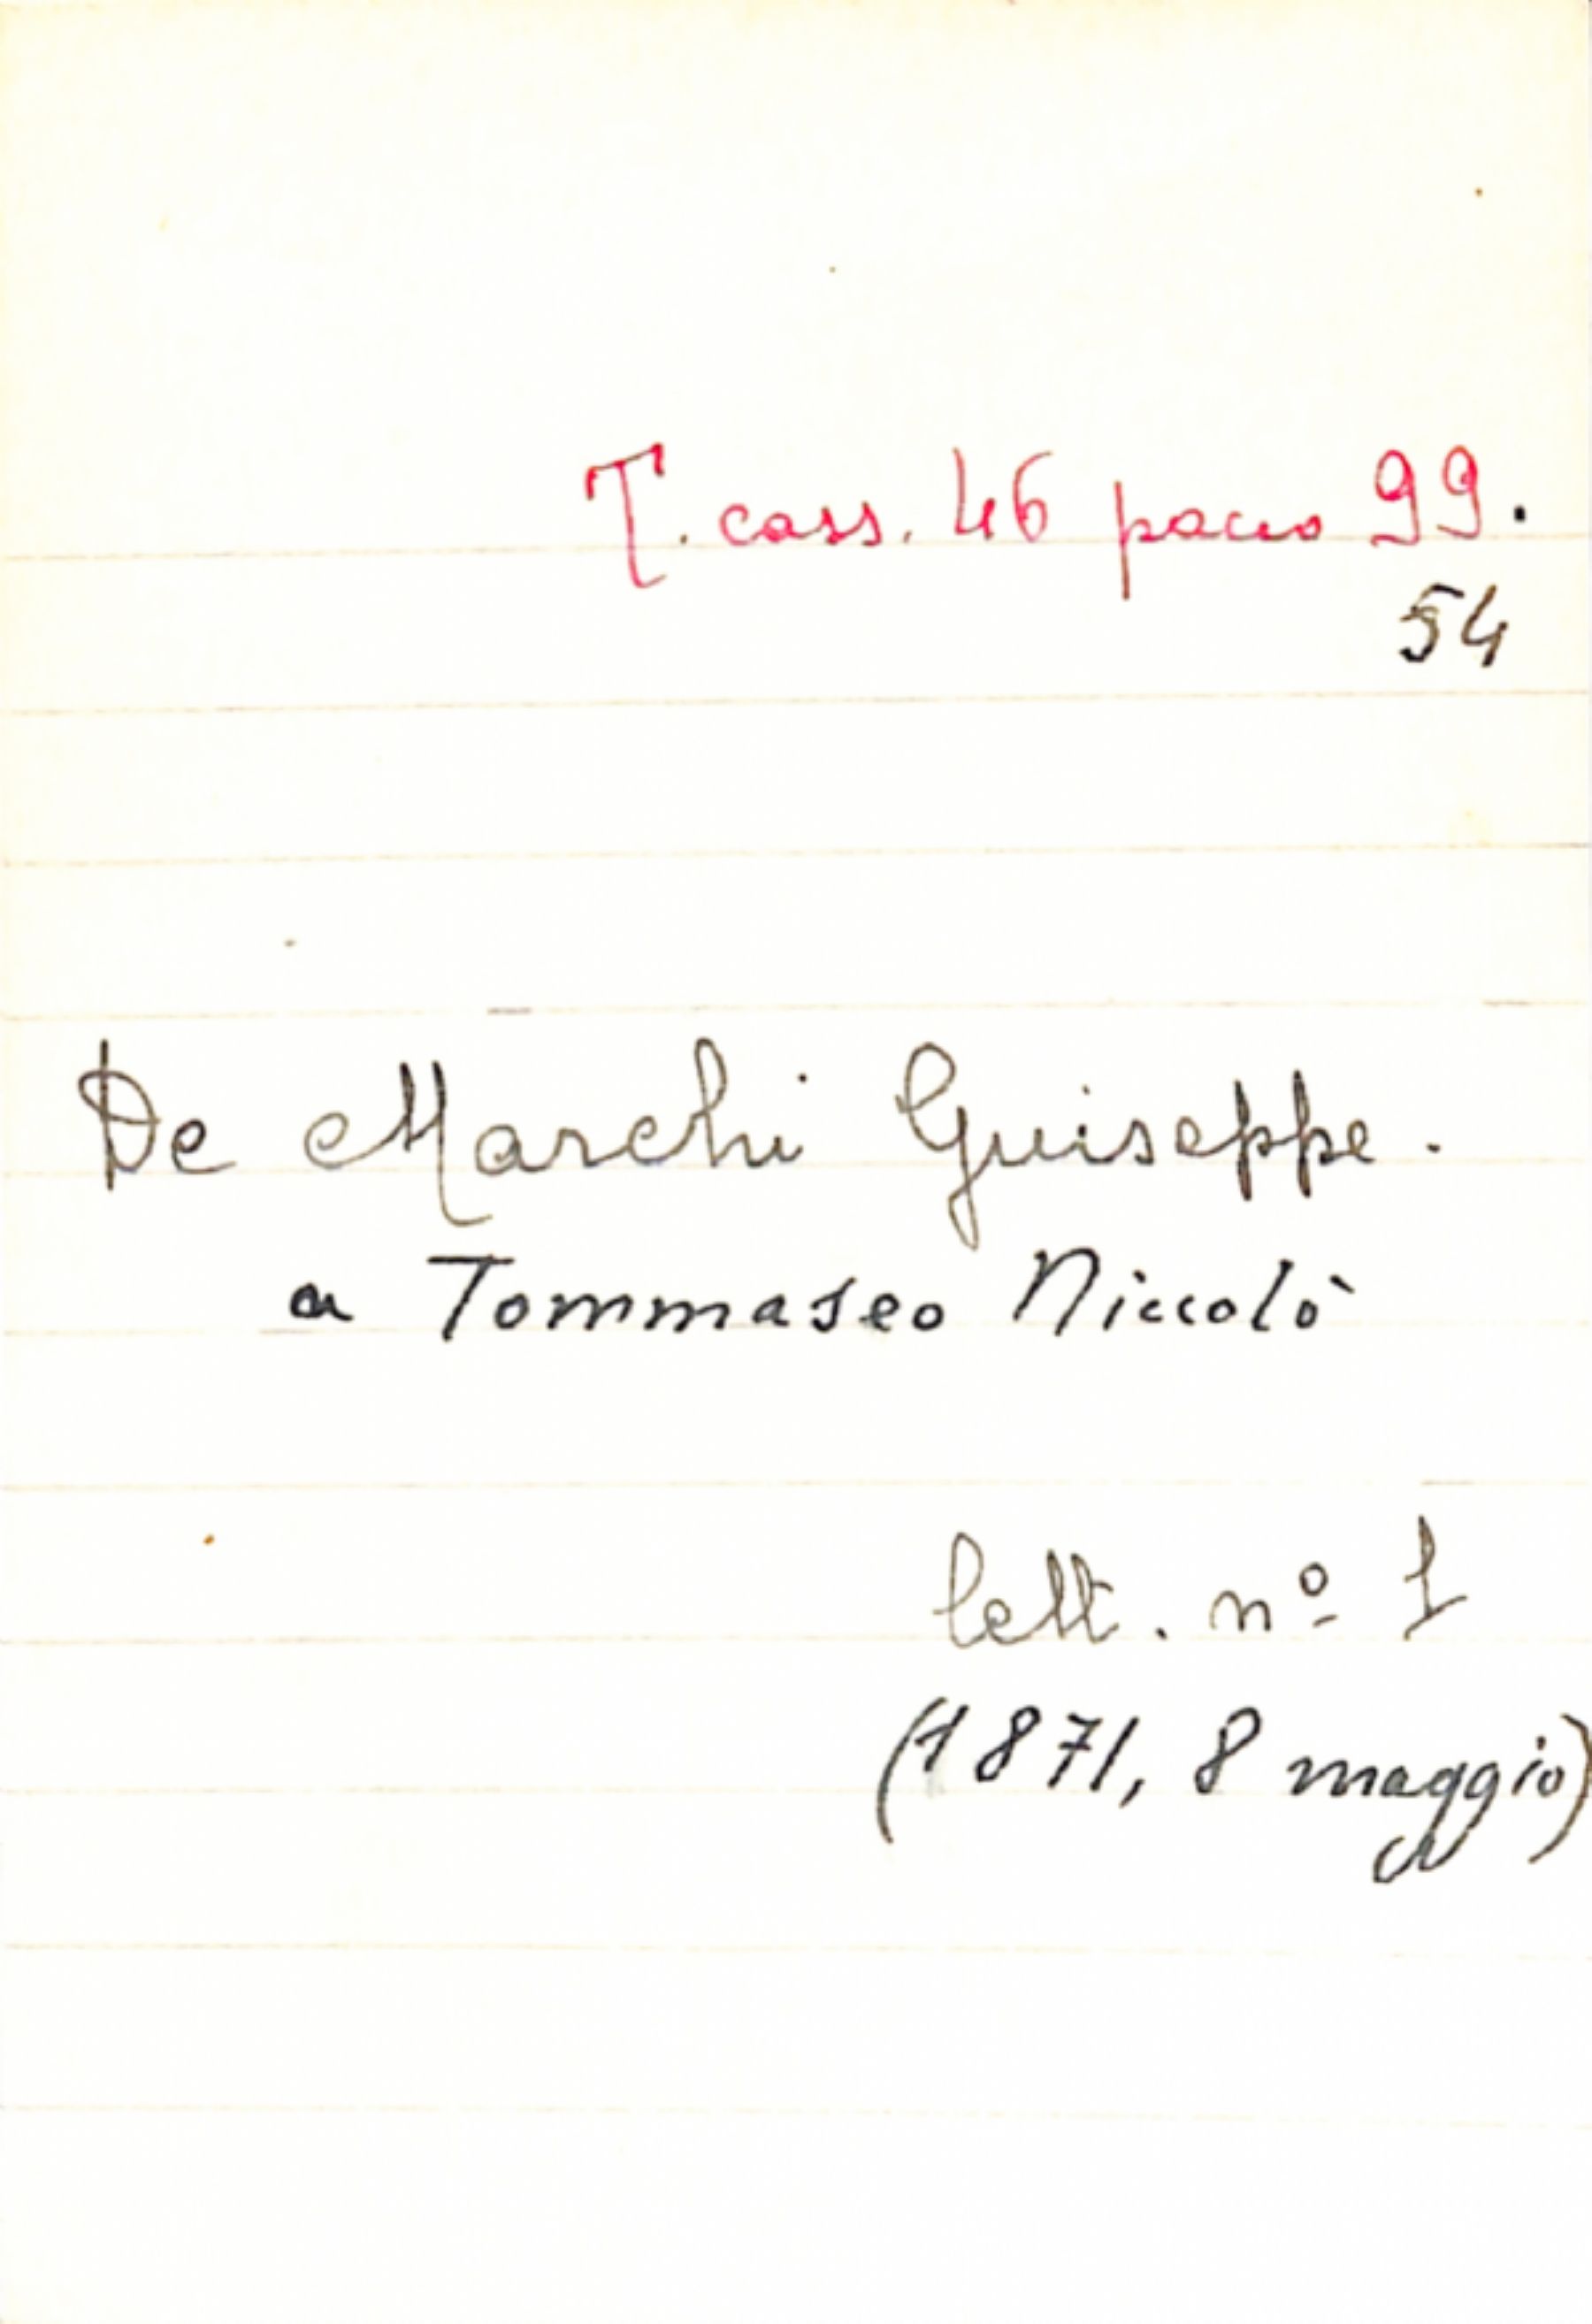 T. cass. 46 pacco 99.
54
De Marchi Giuseppe.
a Tommaseo Niccolò
lett. nº 1
(1871, 8 maggio)